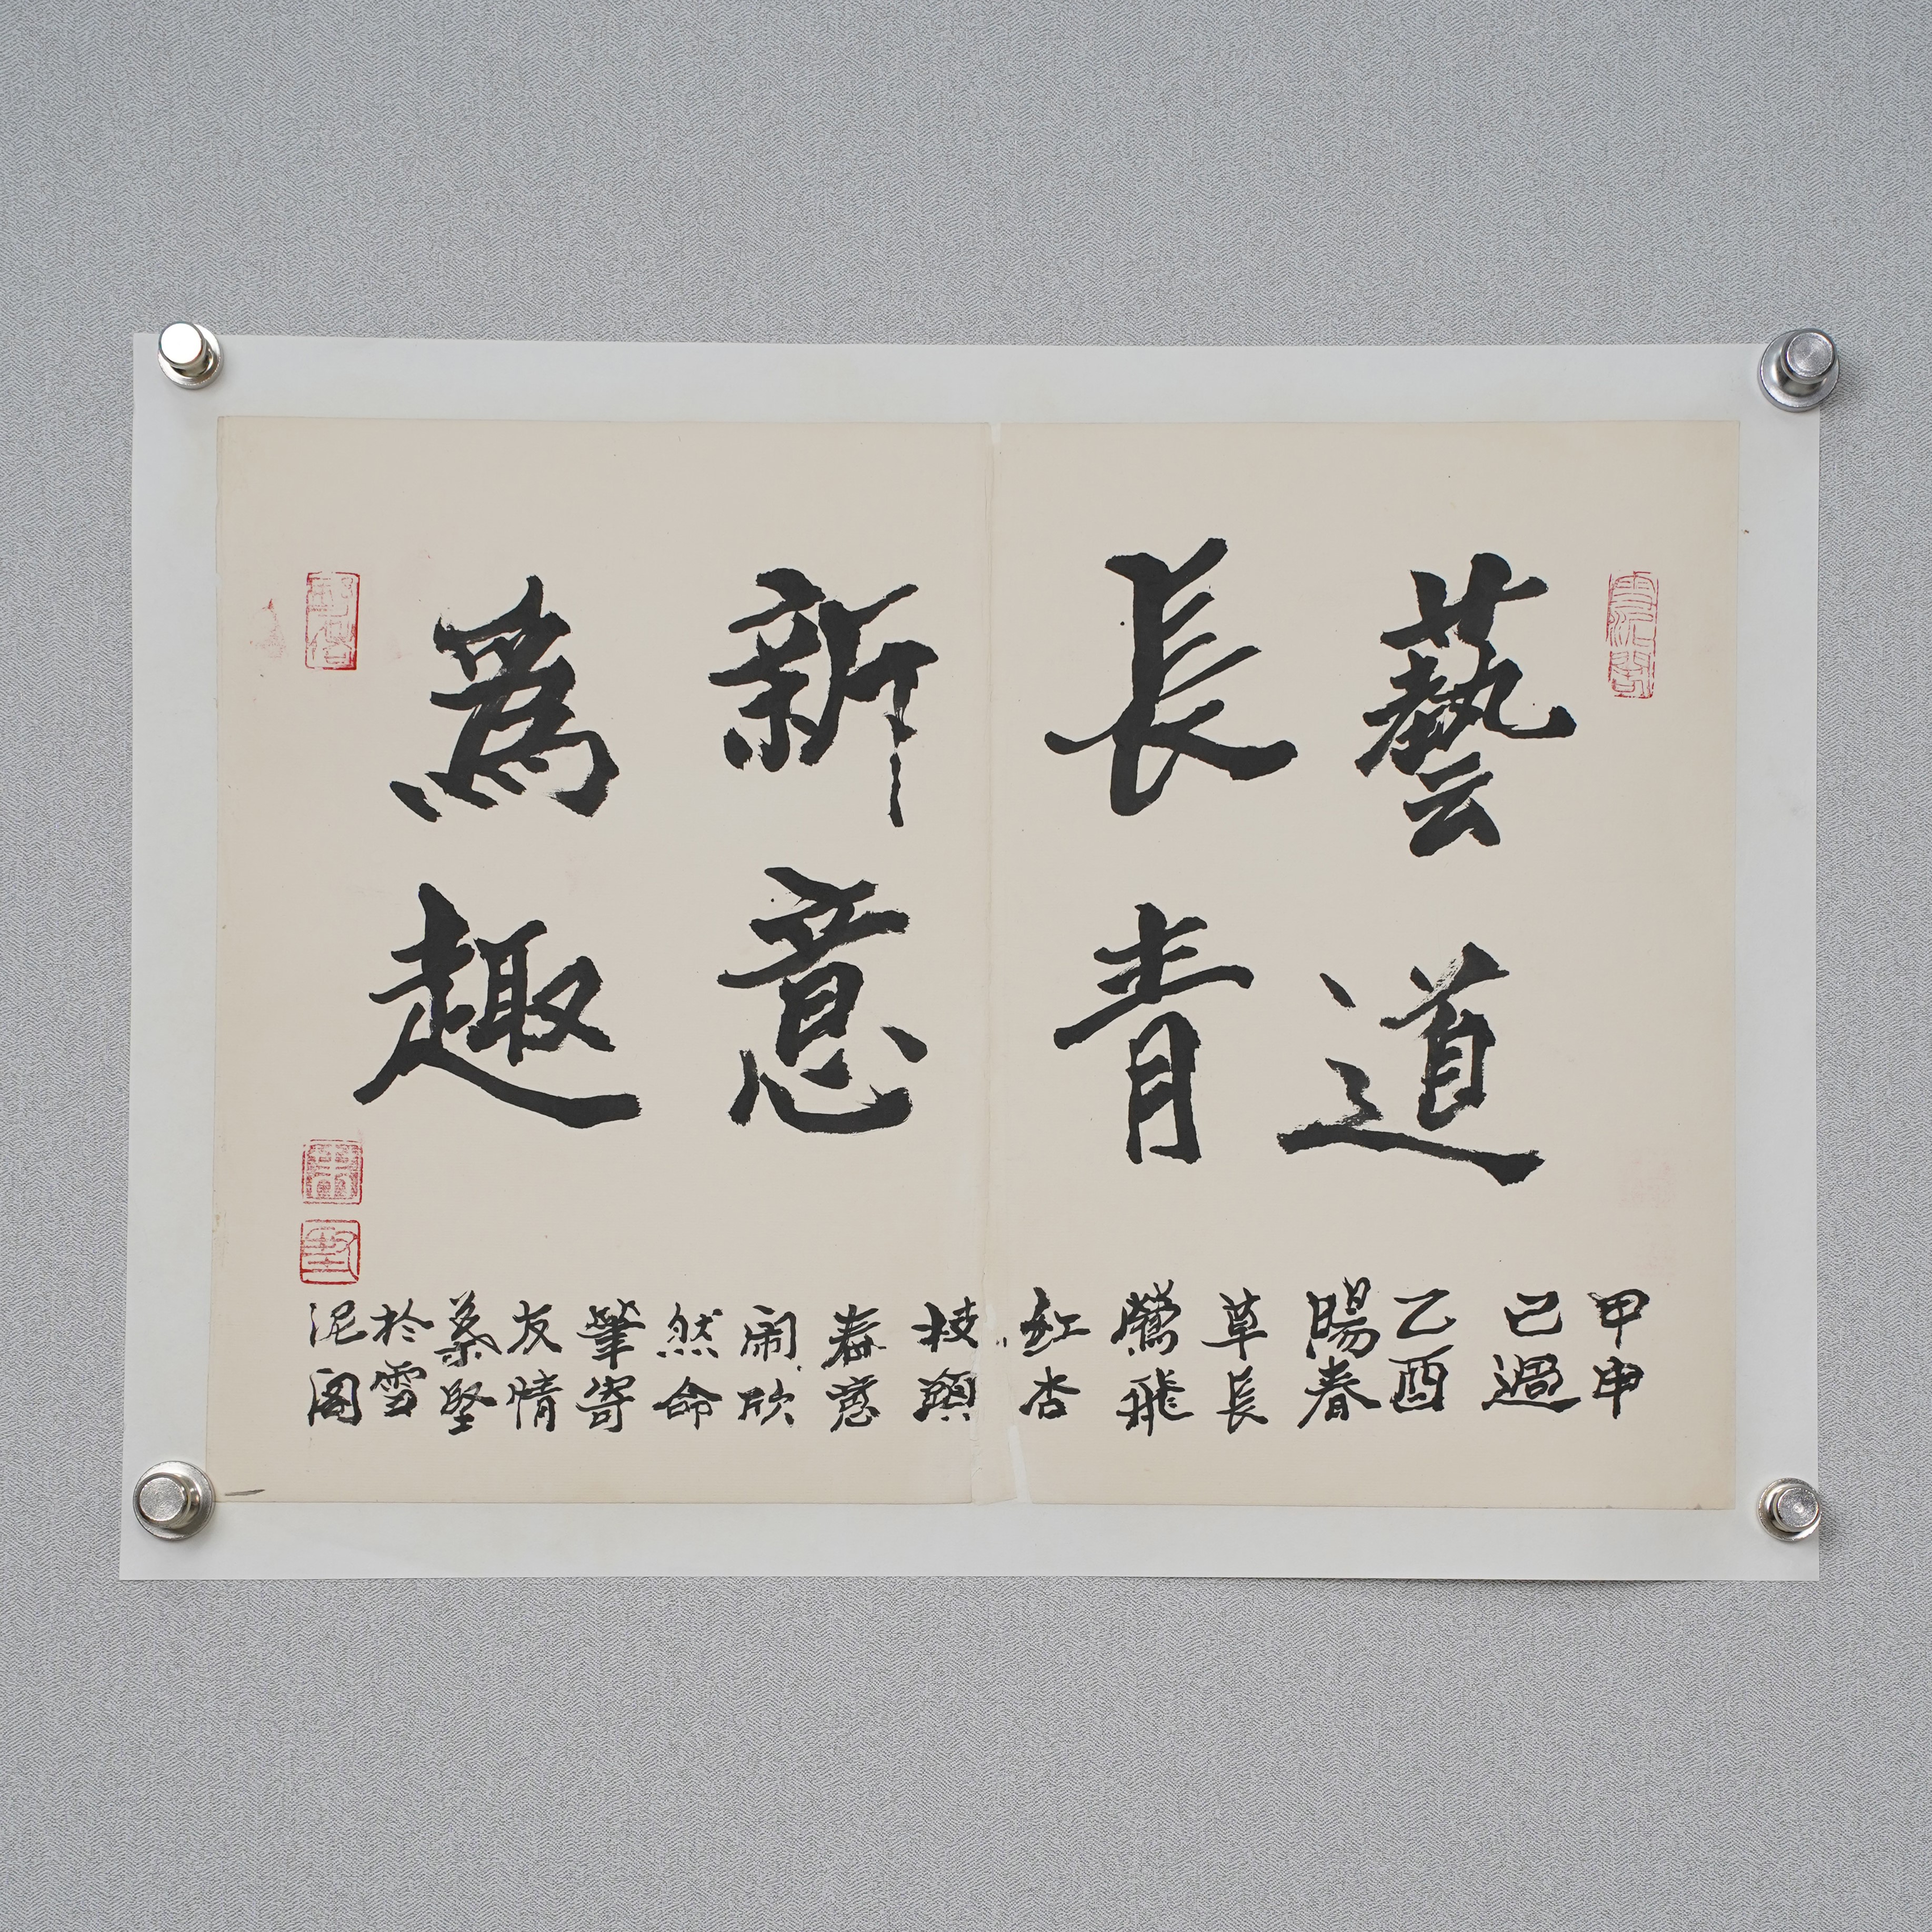 藝道
長青
新意
為趣
甲申
已過
乙酉
陽春
草長
鶯飛
紅杏
枝頭
春意
闹欣
然命
筆寄
友情
蔡堅
於雪
泥阁
雪泥閣